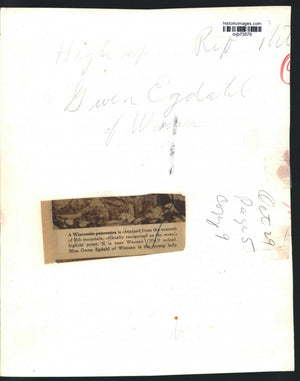 historicimages.com
mjb73579
High up Rib
Gwen Egdahl
of Wausau
Oct 29
Page 5
Copy 9
A Wisconsin panorama is obtained from the summit
of Rib mountain, officially recognized as the state's
highest point. It is near Wausau
Miss Gwen Egdahl of Wausau is the young lady.